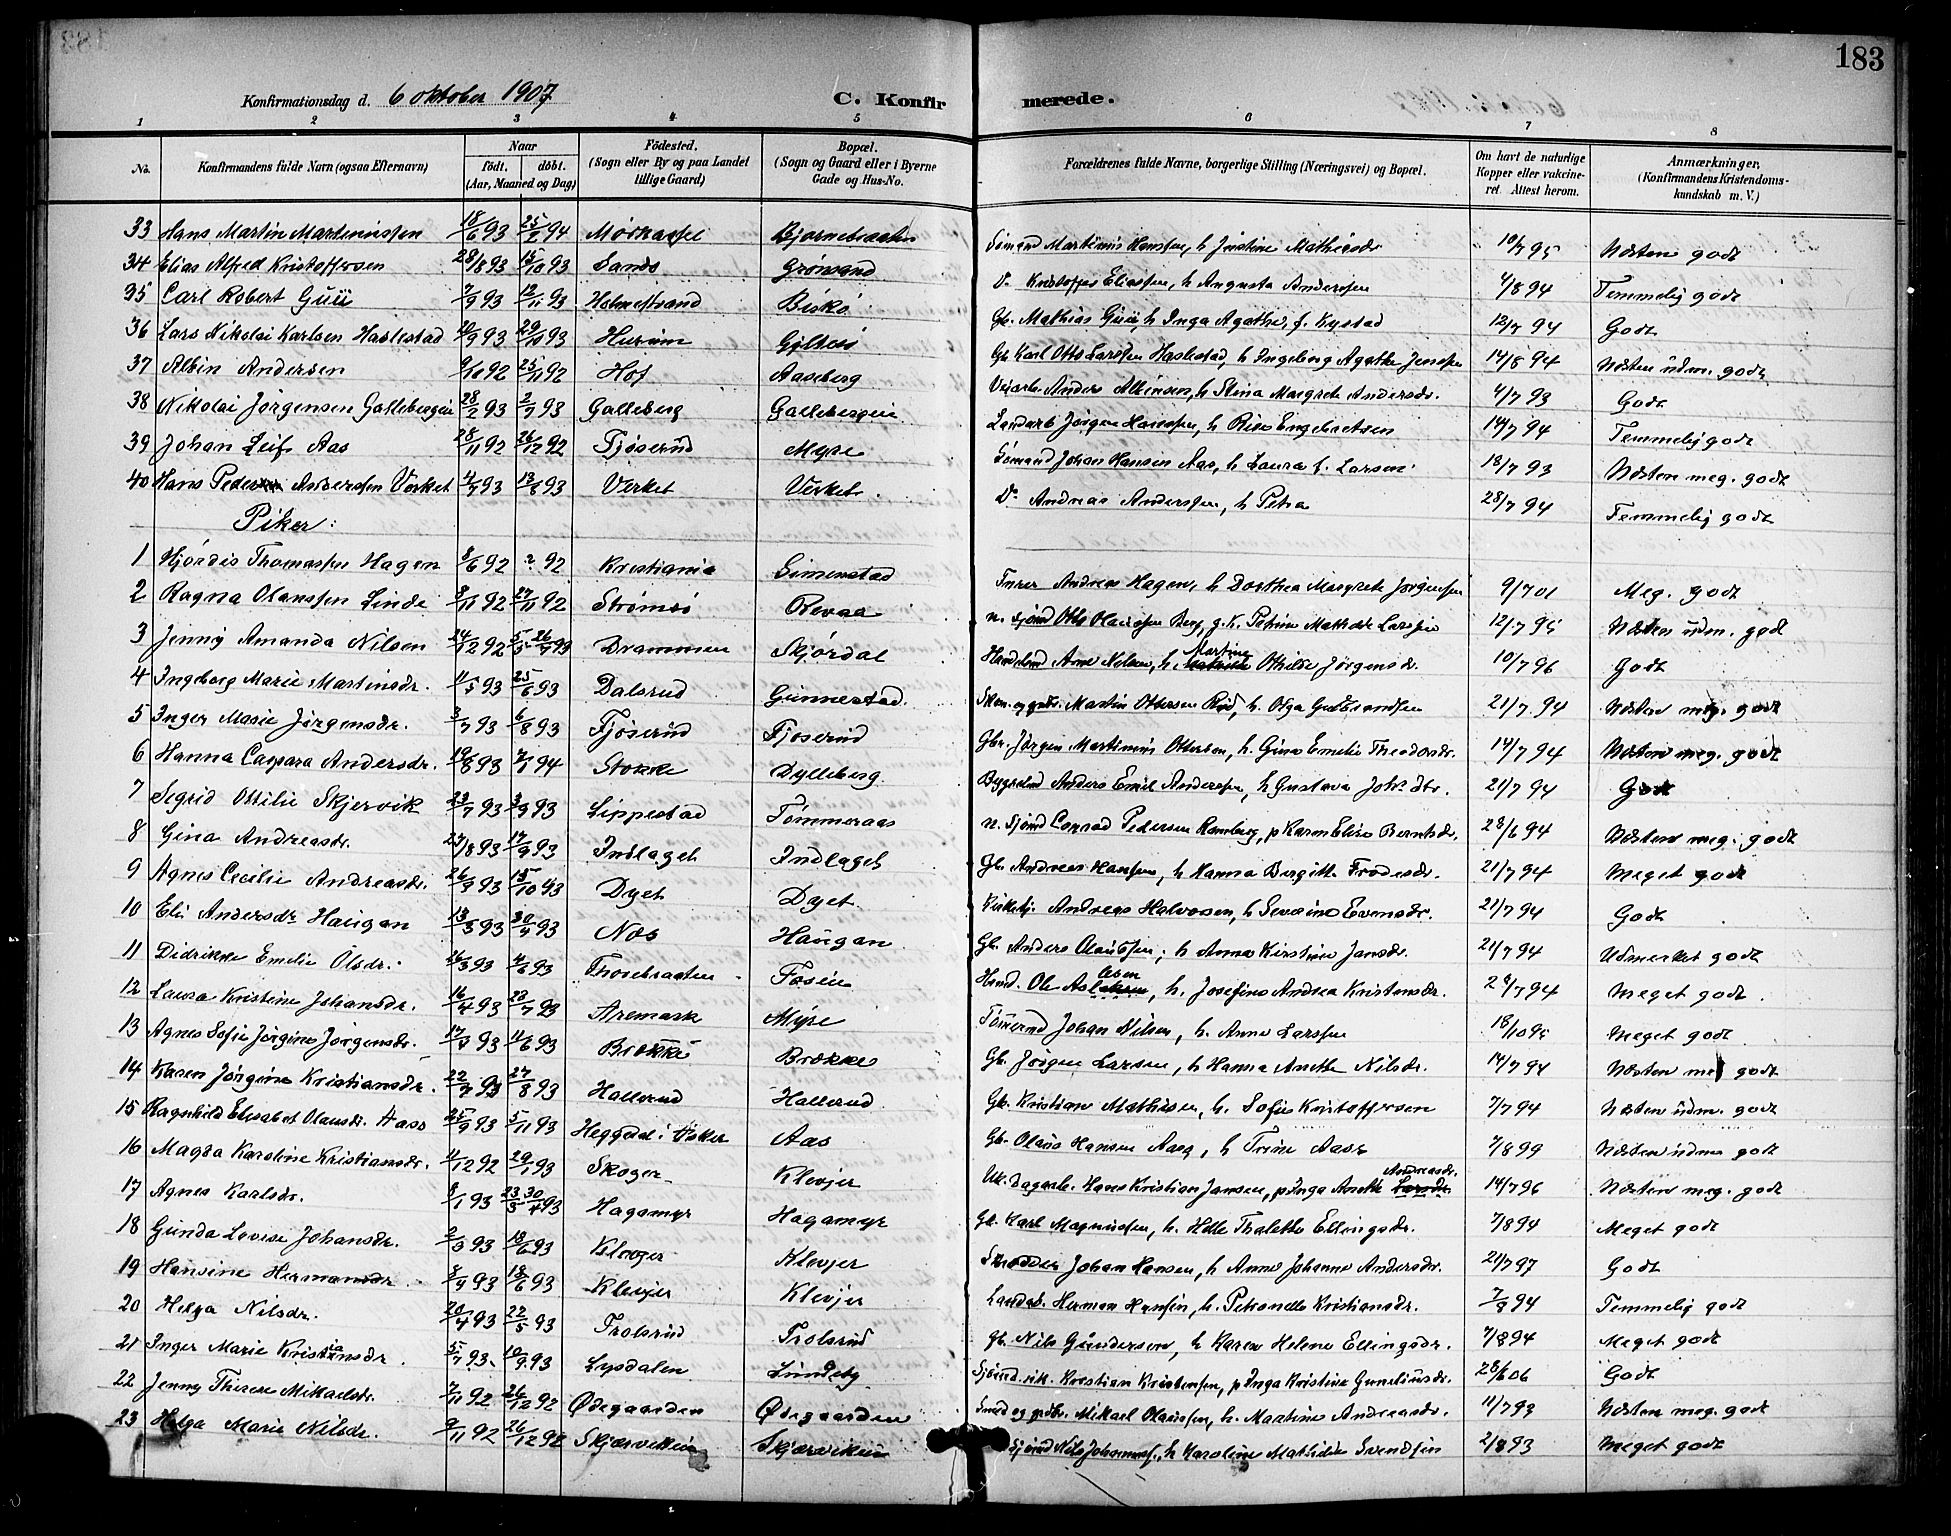 183
Konfirmationsdag d. 6 oktober 1907
C. Konfirmerede.
1 2 3 4 5 6 7 8
No. Konfirmandens fulde Navn (ogsaa Efternavn) Naar født. døbt. (Aar, Maaned og Dag) Fødested. (Sogn eller By og paa Landet tillige Gaard) Bopæl. (Sogn og Gaard eller i Byerne Gade og Hus-No. Forældrenes fulde Navne, borgerlige Stilling (Næringsvei) og Bopæl. Om havt de naturlige Kopper eller vakcineret. Attest herom. Anmærkninger, (Konfirmandens Kristendomskundskab m. V.)
33 Hans Martin Martiniussen 18/6 93 25/2 94 Mørkassel Bjørnebraaten Sømand Martinius Hanssen, h. Justine Mathisdr 10/7 95 Næsten godt
34 Elias Alfred Kristoffersen 28/8 93 15/10 93 Sands Grønsand Do Kristoffer Eliassen, h Augusta Anderssen 4/8 94 Temmelig godt
35 Carl Robert Guii 7/9 93 12/11 93 Holmestrand Biskø Gb. Mathias Guii, h Inga Agathe, f. Rystad 12/7 94 Godt
36 Lars Nikolai Karlsen Haslestad 20/9 93 29/10 93 Hurum Gjltvis Gb Karl Otto Larssen Haslestad, h Ingeborg Agathe Jenssen 14/8 94 Næsten udm. godt
37 Albin Andersen 9/10 92 25/11 92 Hof Aaseberg Anders Albinsen, h. Stina Margrete Andersdr. 4/7 93 Godt
38 Nikolai Jørgensen Gallebergeie 28/2 93 2/7 93 Galleberg Gallebergeie Landarb Jørgen Hanssen, h. Rise Engebretsen 14/7 94 Temmelig godt
39 Johan Leif Aas 28/11 92 26/12 92 Fjøserud Myre Sømand Johan Hansen Aas, h Laura f. Larsen 18/7 93 Næsten meg. godt
40 Hans Peder Anderssen Verket 4/7 93 13/8 93 Verket Verket Do Andreas Anderssen, h Petra 28/7 94 Temmelig godt
Piker:
1 Hjørdis Thomassen Hagen 8/6 92 ? 92 Kristiania Simenstad Andreas Hagen, h Dorthea Margrete Jørgensen 9/7 01 Meg. godt
2 Ragna Olaussen Linde 3/11 92 27/11 92 Strømsø Revaa n. sjømd Otto Olaussen Berg, g.k. Petrine Mathilde Larssen 12/7 95 Næsten udm. godt
3 Jenny Amanda Nilsen 24/12 92 5/3-26/7 93 Drammen Skjørdal Handelmd Arne Nilsen, h. Martine Othilde Jørgensdr. 10/7 96 Godt
4 Ingeborg Marie Martinsdr. 11/5 93 25/6 93 Dalsrud Gunnestad. Skom. og gbr. Martin Ottersen Rød, h. Olga Gulbrandsen 21/7 94 Næsten meg. godt
5 Inger Marie Jørgensdr. 3/7 93 6/8 93 Fjøserud Fjøserud Gbr. Jørgen Martinius Ottersen, h. Gina Emilie Theodorsdr. 14/7 94 Næsten meg. godt
6 Hanna Caspara Andersdr. 19/8 93 7/1 94 Stokke Dylleberg. Byggmd Anders Emil Anderssen, h Gustava Johs dtr. 21/7 94 Godt
7 Sigrid Otilie Skjervik 23/7 93 3/9 93 Lippestad Tømmeraas n. sjømd Conrad Pedersen Ramberg, p Karen Elise Berntsdr. 28/6 94 Næsten meg. godt
8 Gina Andreasdr. 23/8 93 17/9 93 Indlaget Indlaget Gb. Andreas Hanssen, h Hanna Bergitte Frodesdr. 21/7 94 Meget godt
9 Agnes Cecilie Andreasdr. 26/7 93 15/10 93 Dyet Dyet. Kirketj. Andreas Halvorsen, h Severine Evensdr. 21/7 94 Godt
10 Eli Andersdr Haugan 13/3 93 30/4 93 Nes Haugan Gb. Anders Olaussen; h Anne Kirstine Jansdr. 21/7 94 Udmerket godt
11 Didrikke Emilie Olsdr. 26/3 93 4/6 93 Thorebraaten Fosen Hsmd. Ole Aslesen, h. Josefine Andrea Kristensdr. 28/7 94 Meget godt
12 Laura Kristine Johansdr. 16/4 93 23/7 93 Aremark Myre Tømmermd Johan Nilsen, h. Anne Larssen 18/10 95 Meget godt
13 Agnes Sofie Jørgine Jørgensdr. 17/3 93 11/6 93 Brekke Brekke Gb. Jørgen Larsen, h Hanna Anethe Nilsdr. 14/7 94 Næsten meg godt
14 Karen Jørgine Kristiansdr. 22/7 93 27/8 93 Hallerud Hallerud Gb. Kristian Mathisen, h. Sofie Kristoffersen 7/7 94 Næsten udm. godt
15 Ragnhild Elisabet Olausdr. Aass 25/9 93 5/11 93 Heggedal i Asker Aas Gb. Olaus Hansen Aass, h Trine Aass 7/8 99 Næsten udm godt
16 Magda Karoline Kristiansdr. 4/12 92 29/1 93 Skoger Klevjer Uk. Dagarb. Hans Kristian Jansen, p Inga Anethe Andreasdr. 14/7 96 Næsten meg. godt
17 Agnes Karlsdr. 8/1 93 23/3 30/4 93 Hagamyr Hagamyr Gb. Karl Magnussen, h. Helle Thalette Ellingsdr. 7/8 94 Meget godt
18 Gunda Lovise Johansdr. 2/3 93 18/6 93 Klevjer Klevjer Skrædder Johan Hansen, h Anne Johanne Andersdr. 21/7 97 Godt
19 Hansine Hermansdr 3/4 93 18/6 93 Klevjer Klevjer Landarb. Herman Hansen, h. Petronelle Kristiansdr. 7/8 94 Temmelig godt
20 Helga Nilsdr. 20/4 93 22/5 93 Trolsrud Trolsrud Gb. Nils Gundersen, h Karen Helene Ellingsdr. 7/8 94 Meget godt
21 Inger Marie Kristiansdr. 5/7 93 10/9 93 Lysdalen Lundeby Sjømd. Kristian Kristensen, p Inga Kristine Guneliusdr. 28/6 06 Godt
22 Jenny Therese Mikaelsdr. 7/11 92 26/12 92 Ødegaarden Ødegaarden Smed og gbr. Mikael Olaussen, h. Martine Andreasdr. 11/7 93 Næsten meg. godt
23 Helga Marie Nilsdr. 9/11 92 26/12 92 Skjærvikeie Skjærvikeie Sjømd Nils Johannessen, h Karoline Mathilde Svendsen 2/8 93 Meget godt